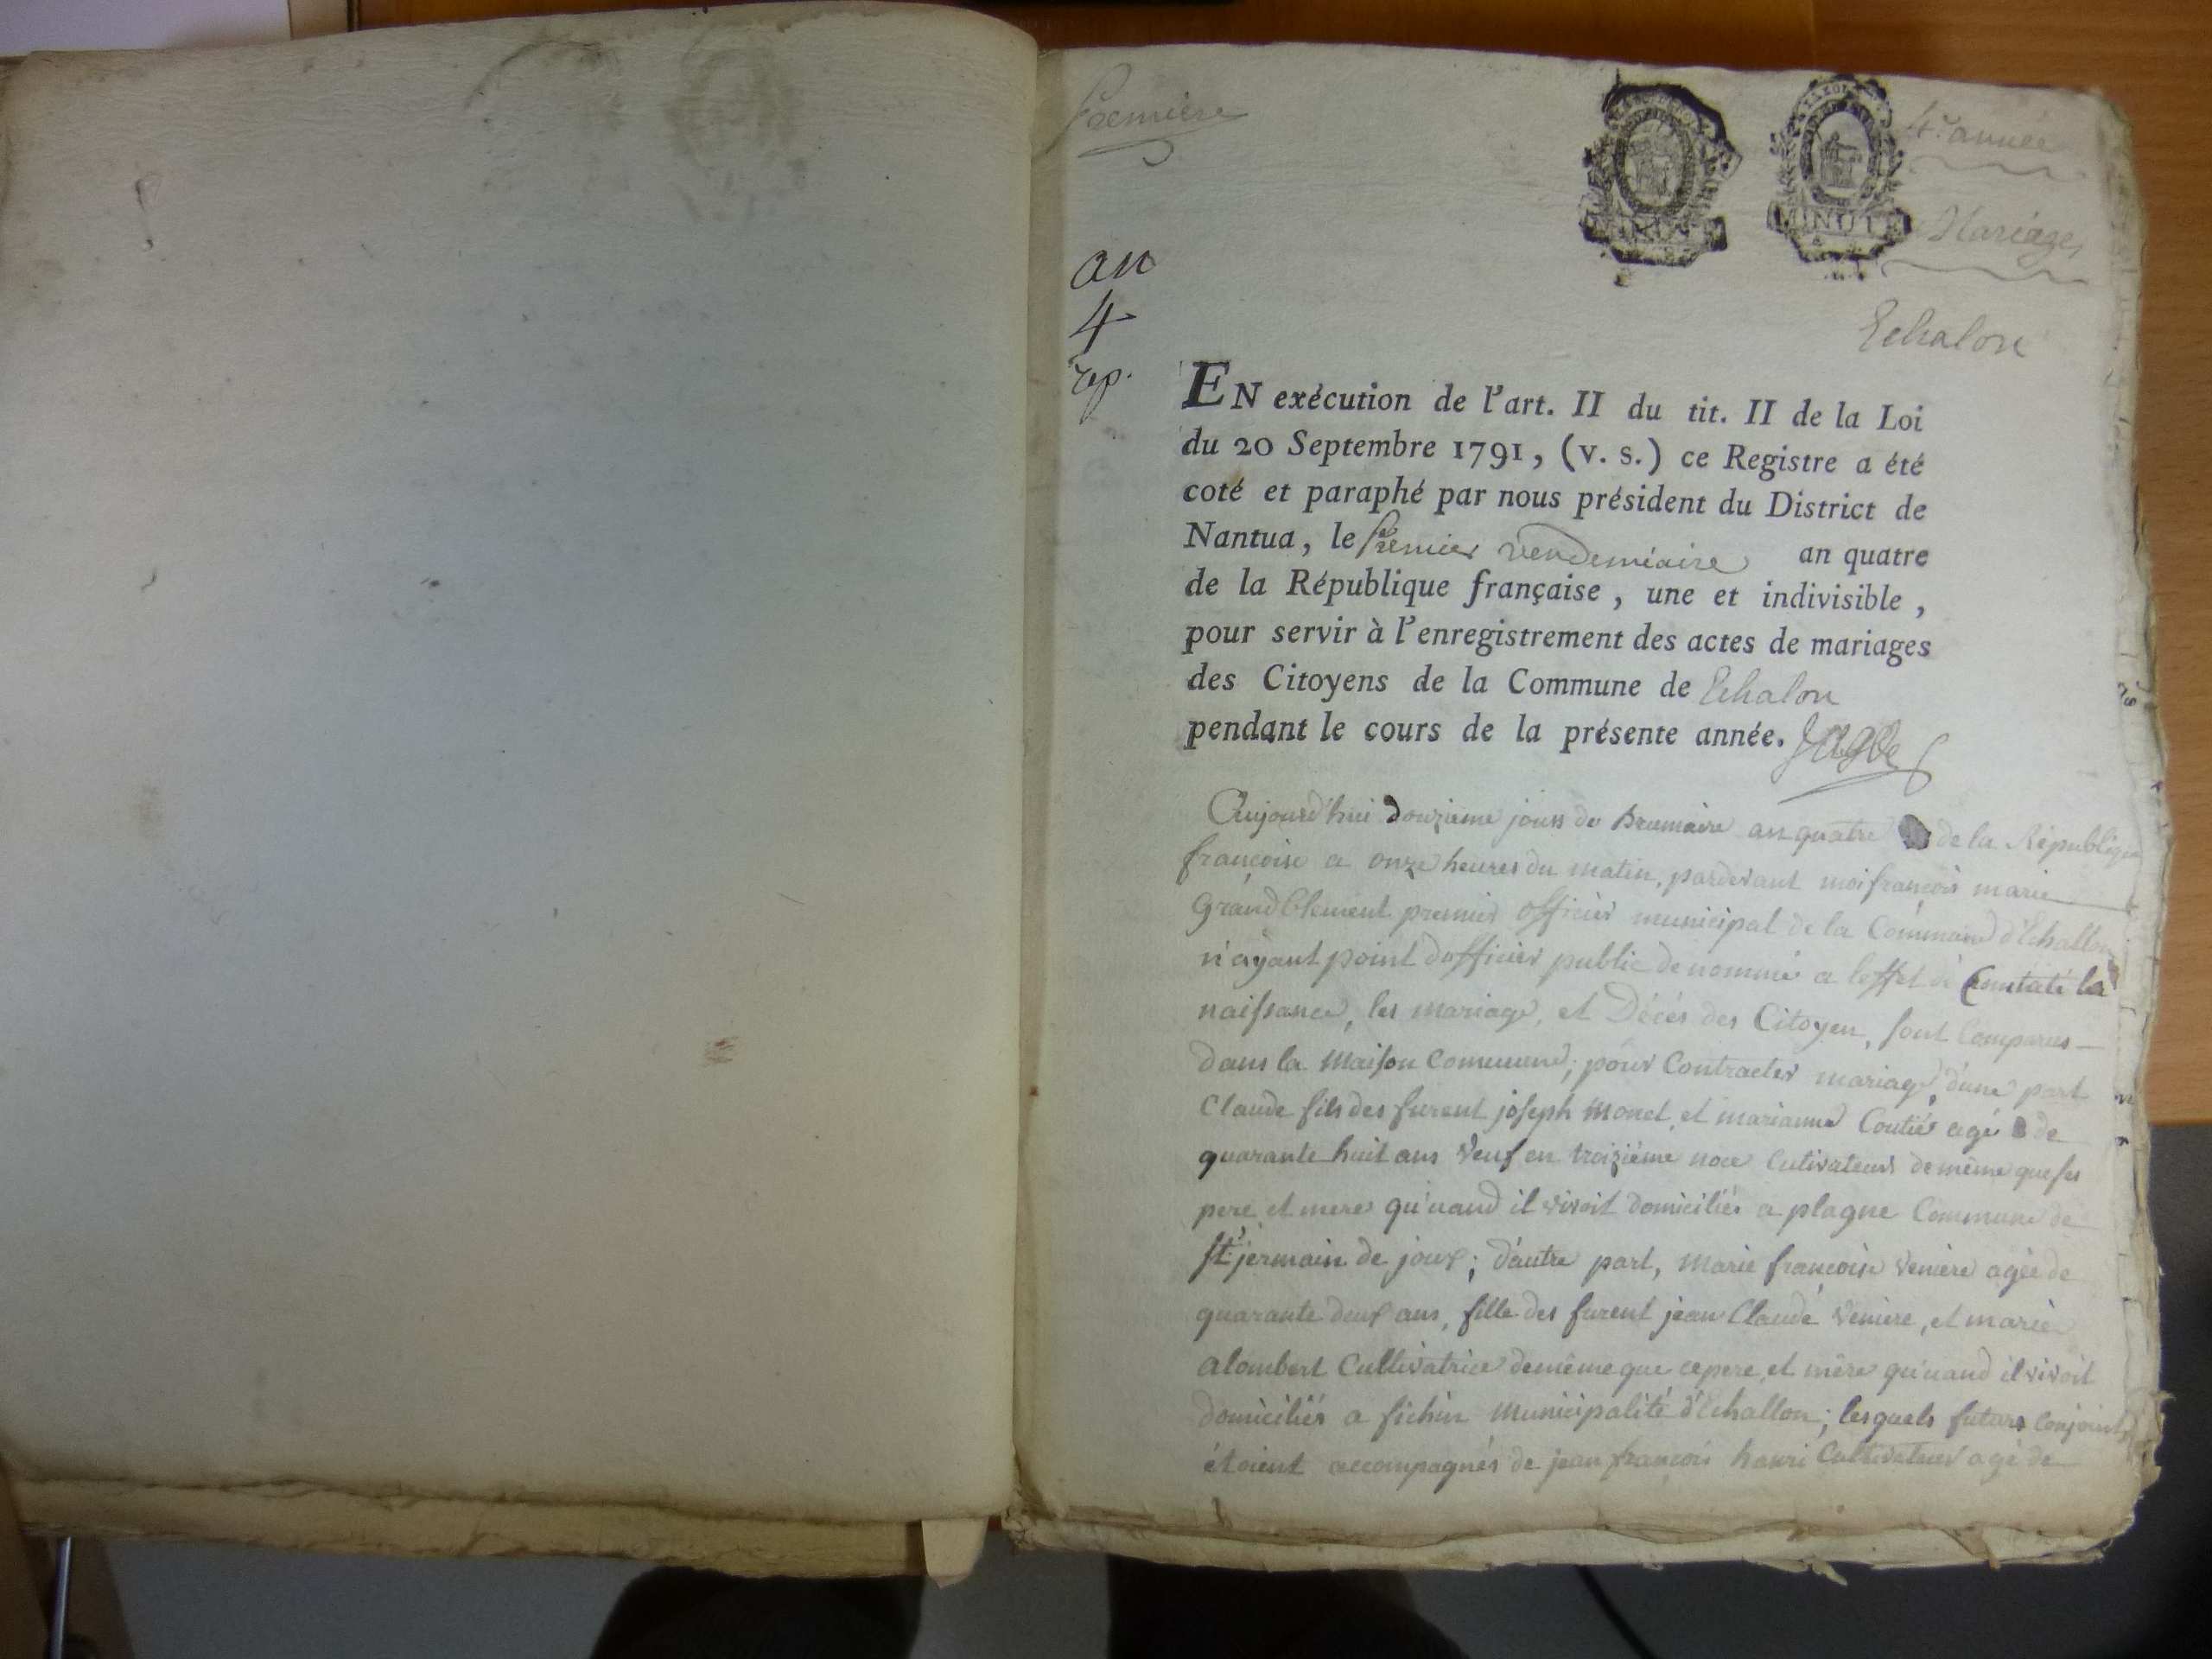 Premiere
4.e année
Mariages
MINUTE
an
4
rép.
Echalon
EN exécution de l'art. II du tit. II de la Loi
du 20 Septembre 1791, (v. s.) ce Registre a été
coté et paraphé par nous président du District de
Nantua, le Premier vendemiaire an quatre
de la République française, une et indivisible,
pour servir à l'enregistrement des actes de mariages
des Citoyens de la Commune de Echalon
pendant le cours de la présente année.
Aujourd'hui Douzieme jours de Brumaire an quatre de la République
françoise a onze heures du matin, pardevant moi françois marie
Grand Clement premier officier municipal de la Commune d'Echallon
n'ayant point dofficier public denommé a leffet de Constaté la
naissance, les mariage, et Décés des Citoyen, sont Comparus
dans la Maison Commune; pour Contracter mariage, d'une part
Claude fils des furent joseph Monet, et marianne Coutier agé de
quarante huit ans Veuf en troizième noce Cutivateur de même que ses
pere et mere qu'uand il vivoit domiciliés a plagne Commune de
St. jermain de joux; d'autre part, Marie françoise Veniere agée de
quarante deux ans, fille des furent jean Claude Veniere, et marie
alombert Cultivatrice demême que ce pere, et mère qu'uand il vivoit
domiciliés a sichin Municipalité d'Echallon; lesquels futurs Conjoints
étoient accompagnés de jean françois henri Cultivateur agé de